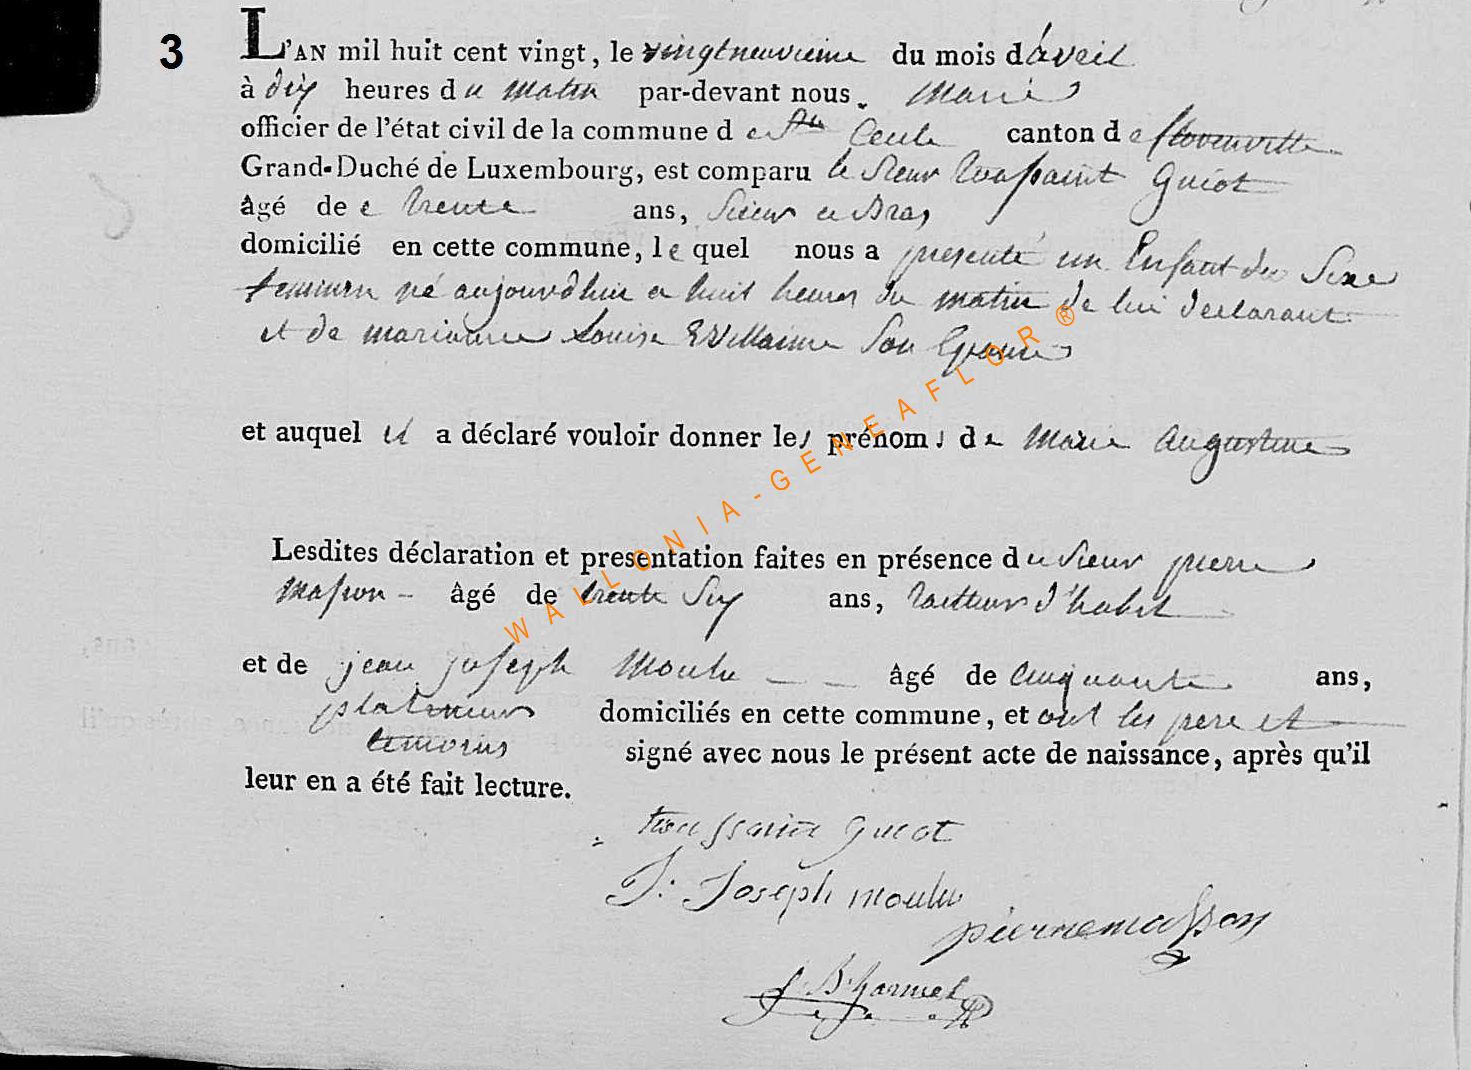 3
L'AN mil huit cent vingt, le vingtneuvieme du mois d'avril
à dix heures du matin par-devant nous Maire
officier de l'état civil de la commune de Ste Cecile canton de florenville
Grand-Duché de Luxembourg, est comparu le Sieur Toussaint Guiot
âgé de trente ans, Scieur de Bras,
domicilié en cette commune, lequel nous a presenté un Enfant du Sexe
feminin né aujourdhui a huit heures du matin de lui declarant
et de marianne Louise Son Epouse
et auquel il a déclaré vouloir donner les prénoms de Marie Augustine
Lesdites déclaration et presentation faites en présence du Sieur pierre
Masson âgé de trente Six ans, tailleur d'habit
et de jean joseph Moulu âgé de Cinquante ans,
platineur domiciliés en cette commune, et ont les pere et
temoins signé avec nous le présent acte de naissance, après qu'il
leur en a été fait lecture.
toussaint guiot
J. Joseph moulu
pierre masson
WALLONIA-GENEAFLOR®